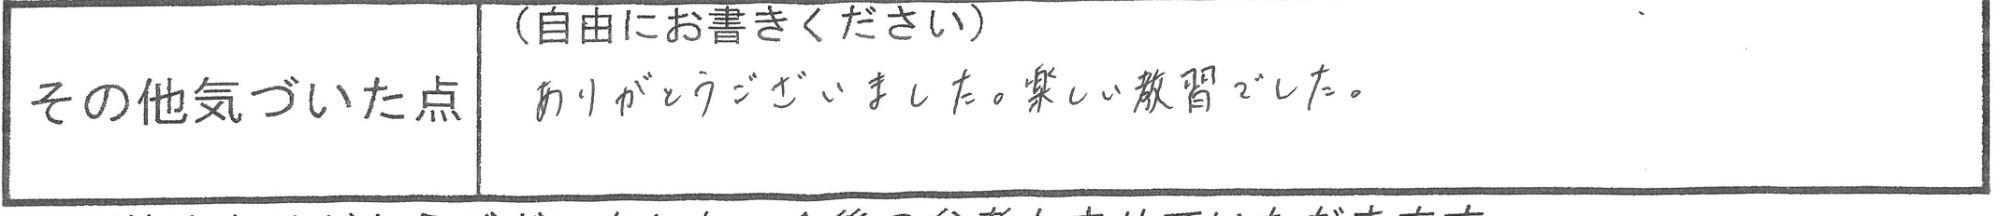 (自由にお書きください)
その他気づいた点
ありがとうございました。楽しい教習でした。